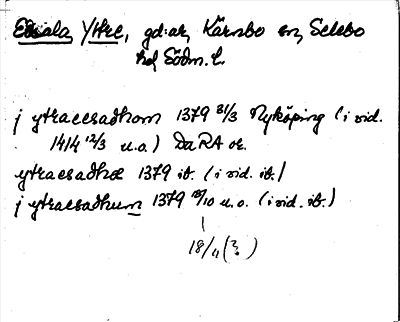 Edsala Yttre, gd:ar, Kärnbo sn, Selebo
hd, Södm. l.
j ytraeesadhom 1379 31/3 Nyköping (i vid.
1414 12/3 u.o.) Da RA or.
ytraesadhæ 1379 ib. (i vid. ib.)
j ytraesadhum 1379 18/10 u.o. (i vid. ib.)
18/11 (?)